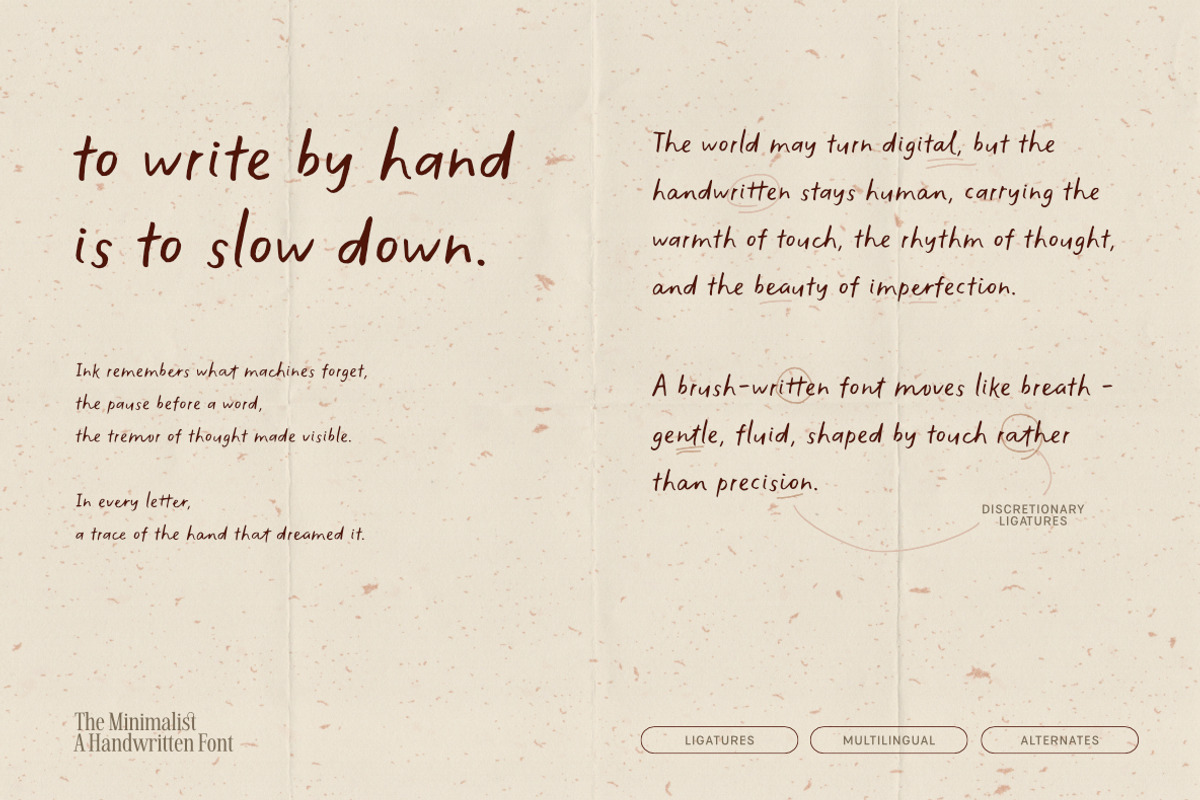 to write by hand
is to slow down.
Ink remembers what machines forget,
the pause before a word,
the tremor of thought made visible.
In every letter,
a trace of the hand that dreamed it.
The world may turn digital, but the
handwritten stays human, carrying the
warmth of touch, the rhythm of thought,
and the beauty of imperfection.
A brush-written font moves like breath -
gentle, fluid, shaped by touch rather
than precision.
DISCRETIONARY
LIGATURES
The Minimalist
A Handwritten Font
LIGATURES
MULTILINGUAL
ALTERNATES